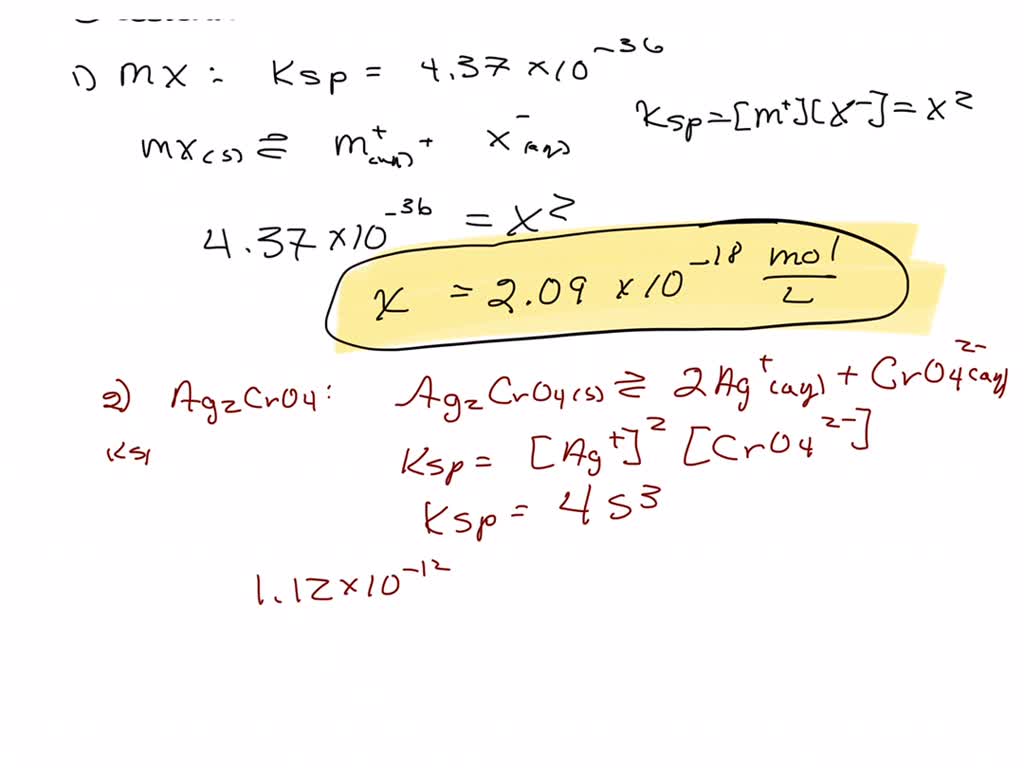 1) MX : Ksp = 4.37 × 10⁻³⁶
Ksp = [M⁺][X⁻] = x²
MX(s) ⇌ M⁺(aq) + X⁻(aq)
4.37 × 10⁻³⁶ = x²
x = 2.09 × 10⁻¹⁸ mol/L
2) Ag₂CrO₄ : Ag₂CrO₄(s) ⇌ 2Ag⁺(aq) + CrO₄²⁻(aq)
Ksp Ksp = [Ag⁺]² [CrO₄²⁻]
Ksp = 4s³
1.12 × 10⁻¹²